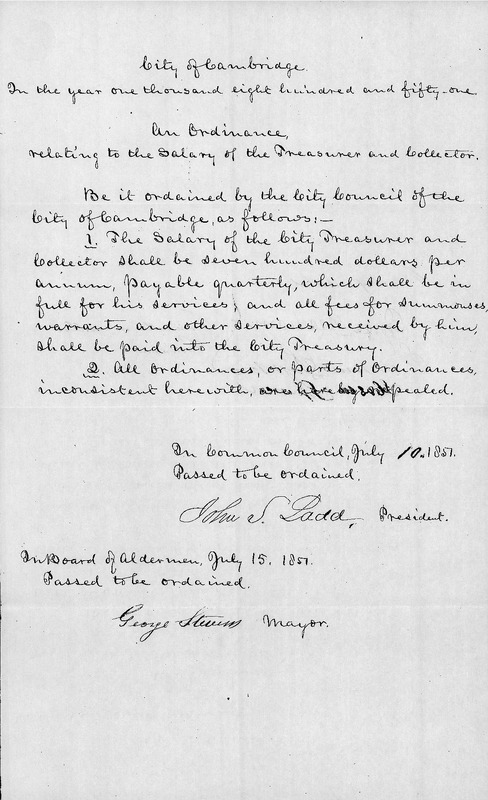 City of Cambridge
In the year one thousand eight hundred and fifty-one
An Ordinance,
relating to the Salary of the Treasurer and Collector.
Be it ordained by the City Council of the
City of Cambridge, as follows:—
1. The Salary of the City Treasurer and
Collector shall be seven hundred dollars per
annum, payable quarterly, which shall be in
full for his services; and all fees for summonses,
warrants, and other services, received by him,
shall be paid into the City Treasury.
2. All Ordinances, or parts of Ordinances,
inconsistent herewith, are hereby repealed.
In Common Council, July 10. 1851.
Passed to be ordained.
John S. Ladd, President.
In Board of Aldermen, July 15. 1851.
Passed to be ordained.
George Stevens Mayor.